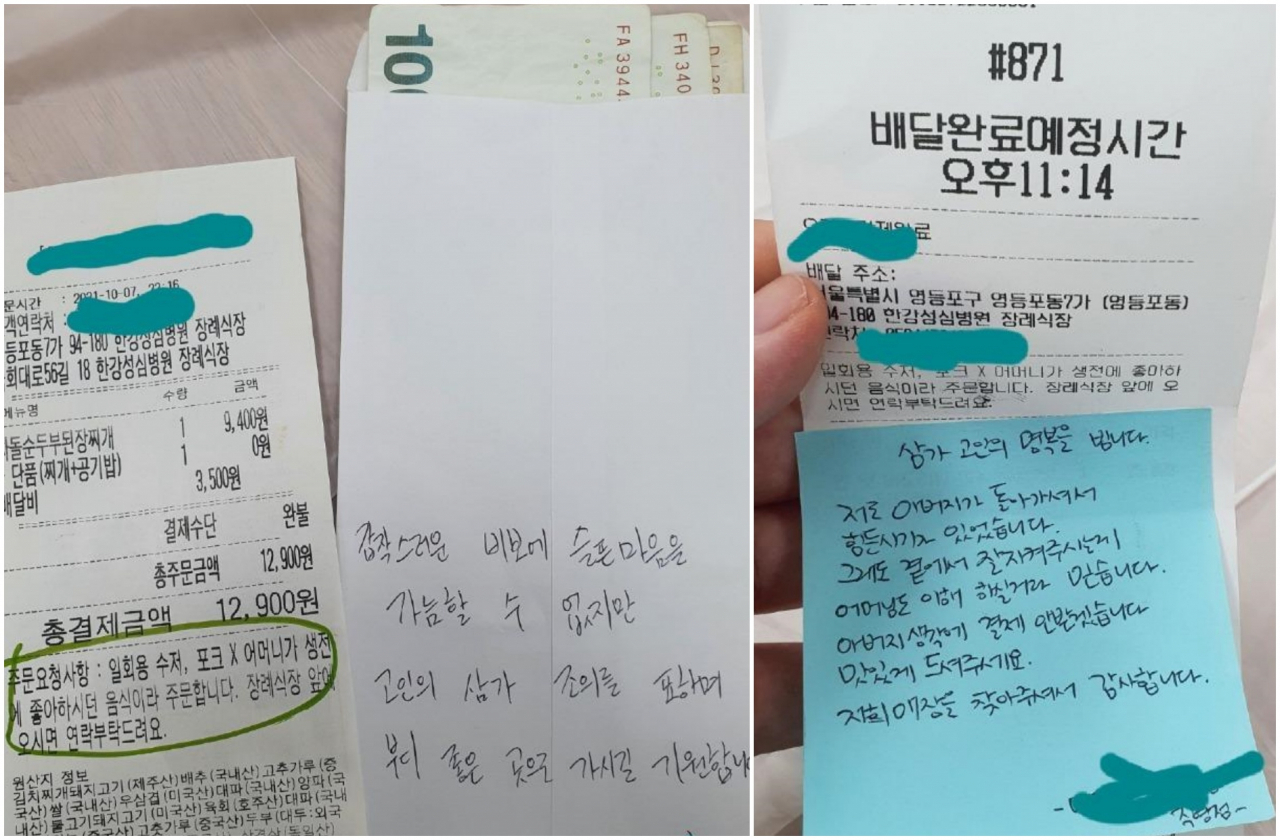 문시간 : 2021-10-07, 22:16
객연락처 :
등포동7가 94-180 한강성심병원 장례식장
회대로56길 18 한강성심병원 장례식장
메뉴명 수량 금액
차돌순두부된장찌개 1 9,400원
단품(찌개+공기밥) 1 0원
배달비 3,500원
결제수단 완불
총주문금액 12,900원
총결제금액 12,900원
주문요청사항 : 일회용 수저, 포크 X 어머니가 생전
에 좋아하시던 음식이라 주문합니다. 장례식장 앞에
오시면 연락부탁드려요.
원산지 정보
김치찌개돼지고기(제주산)배추(국내산)고추가루(중
국산)쌀(국내산)우삼겹(미국산)대파(국내산)양파(국
내산)불고기돼지고기(미국산)육회(호주산)대파(국내
고춧가루(중국산)두부(대두:외국
100
FA3944
FH340
갑작스러운 비보에 슬픈마음을
가늠할 수 없지만
고인의 삼가 조의를 표하며
부디 좋은 곳으로 가시길 기원합니
#871
배달완료예정시간
오후11:14
결제완료
배달 주소:
서울특별시 영등포구 영등포동7가 (영등포동)
94-180 한강성심병원 장례식장
연락처
일회용 수저, 포크 X 어머니가 생전에 좋아하
시던 음식이라 주문합니다. 장례식장 앞에 오
시면 연락부탁드려요.
삼가 고인의 명복을 빕니다.
저도 아버지가 돌아가셔서
힘든시기가 있었습니다.
그래도 곁에서 잘지켜주시는게
어머님도 이해 하실거라 믿습니다.
아버지생각에 결제 안받겠습니다
맛있게 드셔주세요.
저희매장을 찾아주셔서 감사합니다.